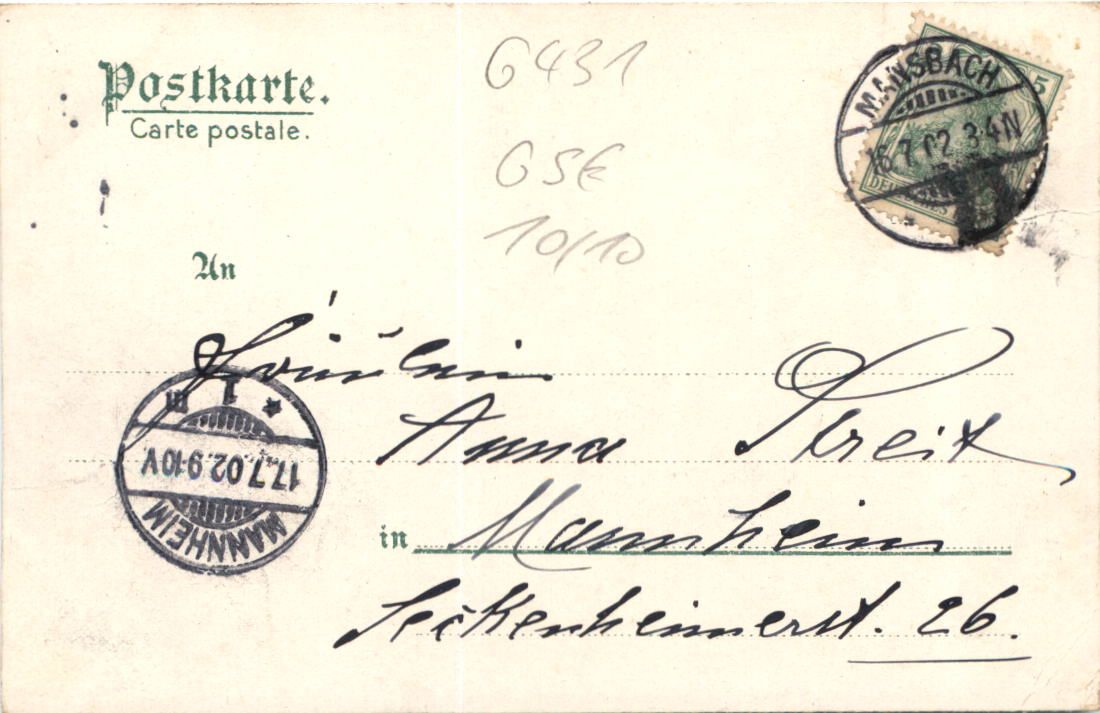 Postkarte.
Carte postale.
G431
GSE
10/10
MANSBACH
16.7.02 3-4N
5
DEUTSCHES
An
Fräulein
Anna Streit
in Mannheim
Seckenheimerst. 26.
MANNHEIM
17.7.02.9-10V
* 1 m